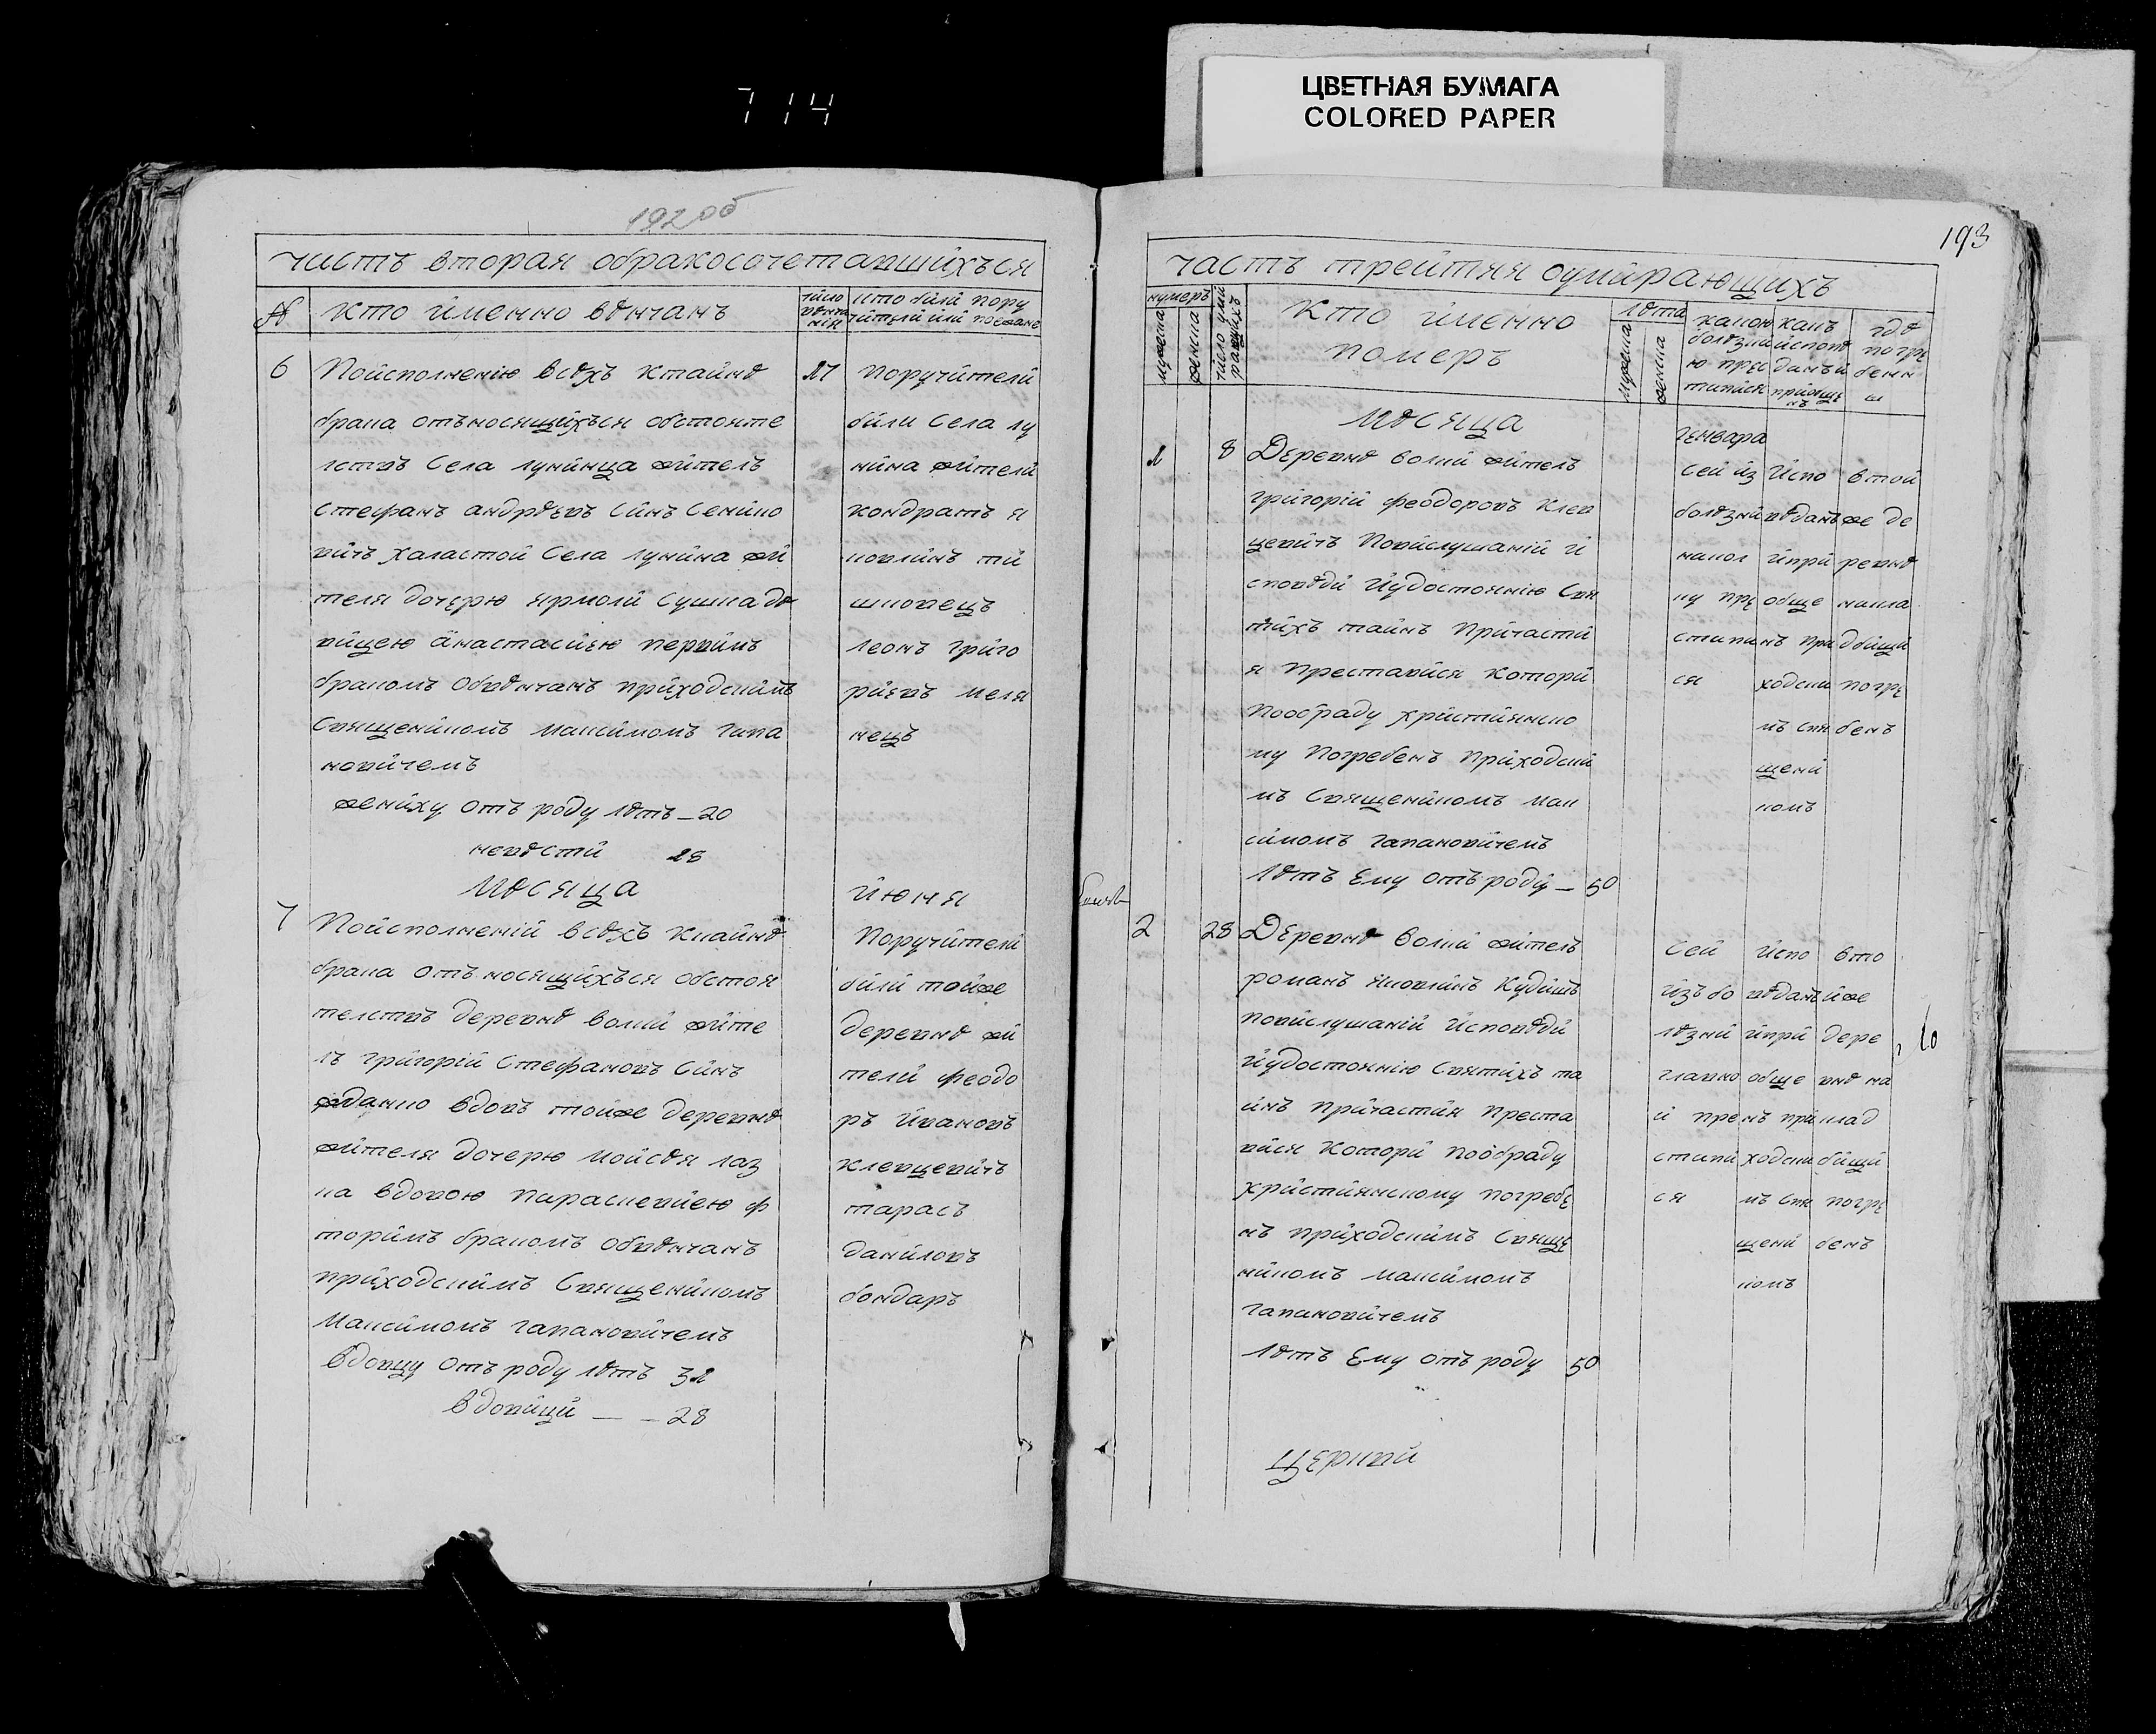 714
ЦВЕТНАЯ БУМАГА
COLORED PAPER
192 об
часть вторая обракосочетавшихъся
№ кто именно вѣнчанъ
число вѣнча нія
кто били пору чители или поезжане
6 Поисполненію всѣхъ ктайнѣ 27
брака отъносящихъся обстояте
лствъ Села лунинца житель
Стефанъ андрѣевъ Синъ Сенкко
вичъ халастой Села лунина жи
теля дочерю ярмоли Сушкадо
вицею анастасиею первимъ
бракомъ Обвѣнчанъ приходскимъ
Священикомъ максимомъ гапа
новичемъ
жениху отъ роду лѣтъ – 20
невѣсти 18
поручители
били Села лу
нина жители
кондратъ я
ковлинъ ти
шковецъ
леонъ григо
риевъ меля
нецъ
мѣсяца июня
7 Поисполнений всѣхъ ктайнѣ
брака отъносящихъся обстоя
телствъ деревнѣ волки жите
лъ григорій Стефановъ Синъ
жданко вдовъ тойже деревнѣ
жителя дочерю мойсѣя лаз
ка вдовою параскевиею ф
торимъ бракомъ обвѣнчанъ
приходскимъ Священикомъ
Максимомъ гапановичемъ
вдовцу отъ роду лѣтъ 32
вдовици — – 28
Поручители
били тойже
деревнѣ жи
тели феодо
ръ ивановъ
клевцевичъ
тарасъ
даниловъ
бондаръ
193
часть трейтяя оумирающихъ
нумеръ
мужеска
женска
число уми рающихъ
кто именно
померъ
лѣта
мужеска
женска
какою болѣзни ю прес тавися
какъ исповѣ данъ и приобще нъ
гдѣ погре бенн и
мѣсяца генвара
1 8 Деревнѣ волки житель
григорій феодоровъ Клев
цевичъ Повислушаній И
сповѣди Иудостоянію Свя
тихъ тайнъ Причасти
я Преставися котори
пообраду християнско
му Погребенъ Приходски
мъ Священикомъ мак
симомъ гапановичемъ
лѣтъ Ему отъ роду – 50
сей из
болѣзни
накол
ну пре
стави
ся
Испо
вѣданъ
ипри
обще
нъ при
ходски
мъ свя
щени
комъ
втой
же де
ревнѣ
накла
дбищи
погре
бенъ
2 28 Деревнѣ волки житель
романъ яковлинъ Кудинъ
повислушаній Исповѣди
Иудостоянію Святихъ та
инъ причастия преста
вися Котори пообраду
християнскому погребе
нъ приходскимъ Свяще
никомъ максимомъ
гапановичемъ
лѣтъ Ему отъ роду 50
сей
изъ бо
лѣзни
главно
й пре
стави
ся
испо
вѣданъ
ипри
обще
нъ при
ходски
мъ свя
щени
комъ
вто
йже
дере
внѣ на
клад
бищи
погре
бенъ
Церкви